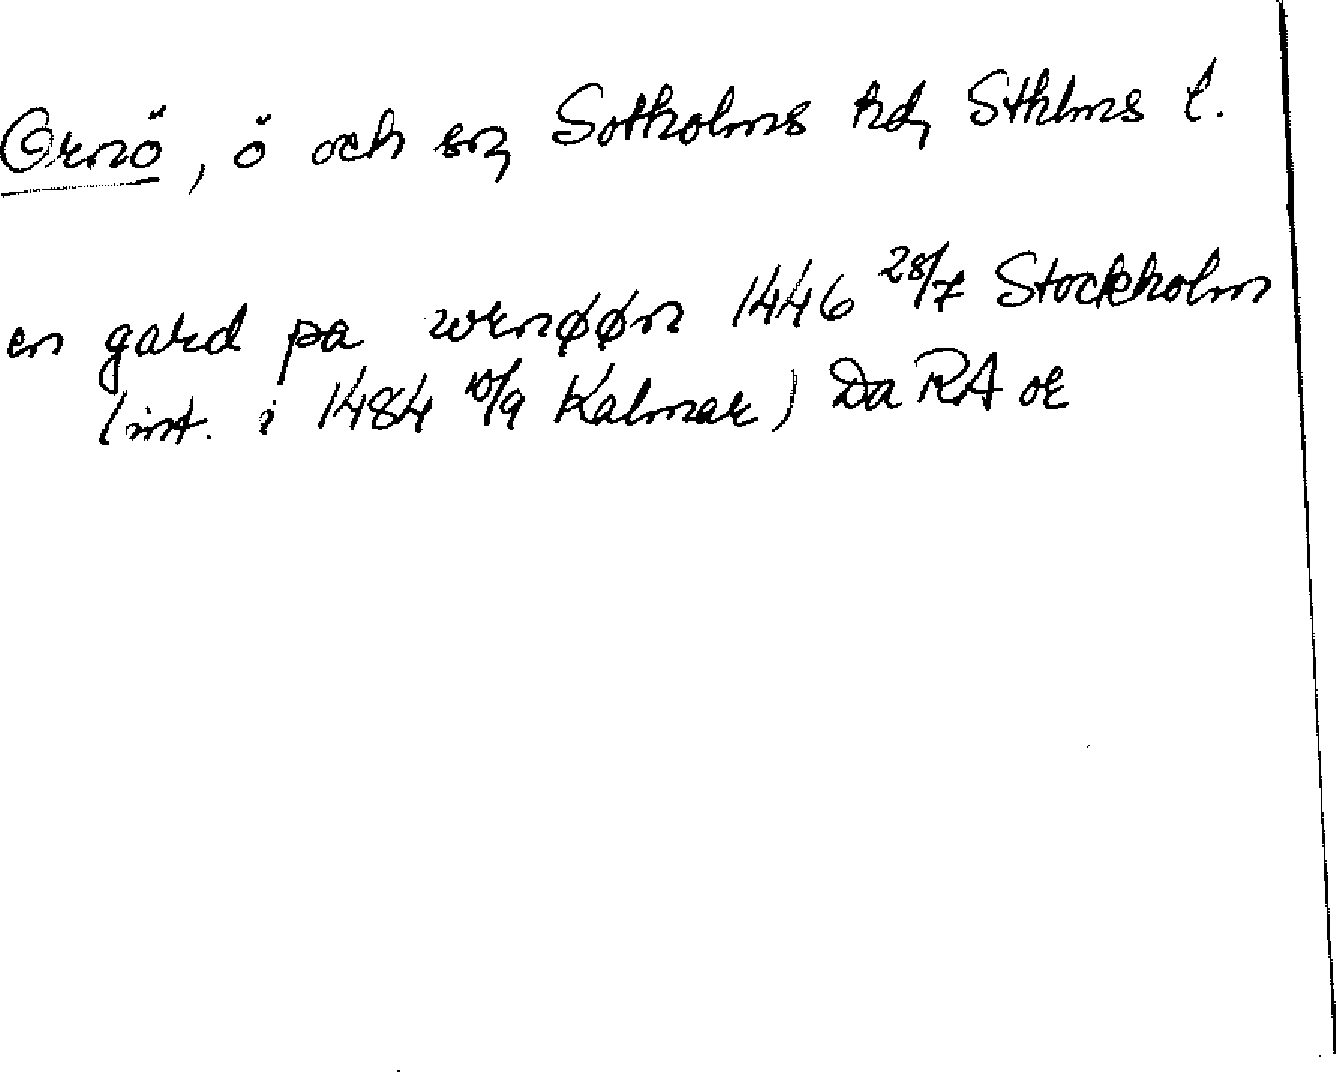 Ornö, ö och sn, Sotholms hd, Sthlms l.
en gard pa wrnøøn 1446 28/7 Stockholm
(int. i 1484 10/9 Kalmar) Da RA or